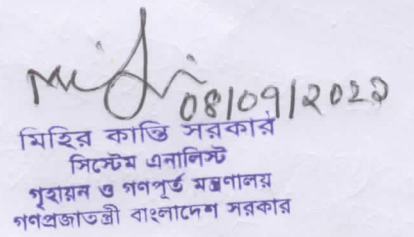 08/09/2022
মিহির কান্তি সরকার
সিস্টেম এনালিস্ট
গৃহায়ন ও গণপূর্ত মন্ত্রণালয়
গণপ্রজাতন্ত্রী বাংলাদেশ সরকার